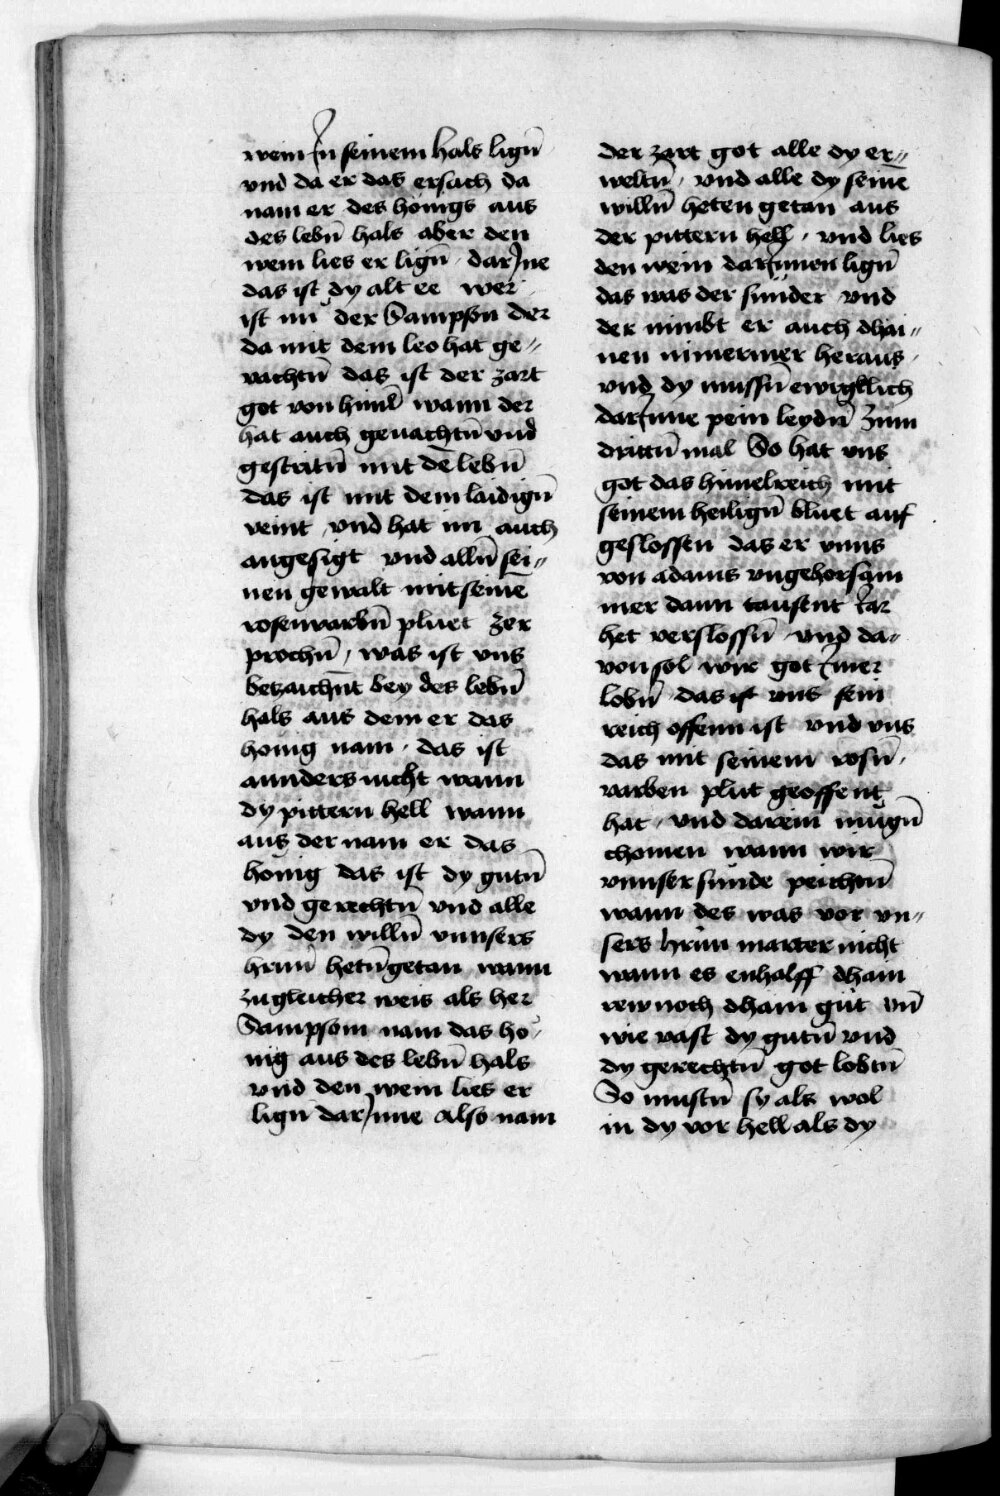 wein Jn seinem hals ligñ
vnd da er das ersach da
nam er des honigs aus
des lebñ hals aber den
wein lies er ligñ · darJne
das ist dy alt ee wer
ist nu der Sampson der
da mit dem leo hat ge〃
vachtñ das ist der zart
got von himl wann der
hat auch geuachtñ vnd
gestritñ mit dē lebñ
das ist mit dem laidigñ
veint , vnd hat im auch
angesigt vnd allñ sei〃
nen gewalt mit seinē
rosenvarbñ pluet zer
prochñ , was ist vns
betzaichñt bey des lebñ
hals aus dem er das
honig nam · das ist
annders nicht wann
dy pittern hell wann
aus der nam er das
honig das ist dy gutñ
vnd gerechtñ vnd alle
dy den willñ vnnsers
hrnn hetñ getan wann
zu gleicher weis als her
Sampsom nam das ho〃
nig aus des lebñ hals
vnd den wein lies er
ligñ darJnne also nam
der zart got alle dy er〃
weltñ , vnd alle dy seinē
willñ heten getan aus
der pittern hell , vnd lies
den wein darJnnen ligñ
das was der sunder vnd
der nimbt er auch dhai〃
nen nimermer heraus ,
vnd dy mussñ ewigklich
darJnne pein leydñ Zum
drittñ mal So hat vns
got das himelreich mit
seinem heiligñ bluet auf
geslossen das er vnns
von adams vngehorsam
mer dann tausent Jar
het verslossñ vnd da〃
von sol wir got Jmer
lobñ · das ist vns sein
reich offenn ist vnd vns
das mit seinem rosñ ,
varben plut geoffent
hat , vnd darein mugñ
chomen wann wir
vnnser sunde peichtñ
wann des was vor vn〃
sers hrnn marter nicht
wann es enhalff dhain
rew noch dhain güt vñ
wie vast dy gutñ vnd
dy gerechtñ got lobtñ
So mustñ sy als wol
in dy vor hell als dy